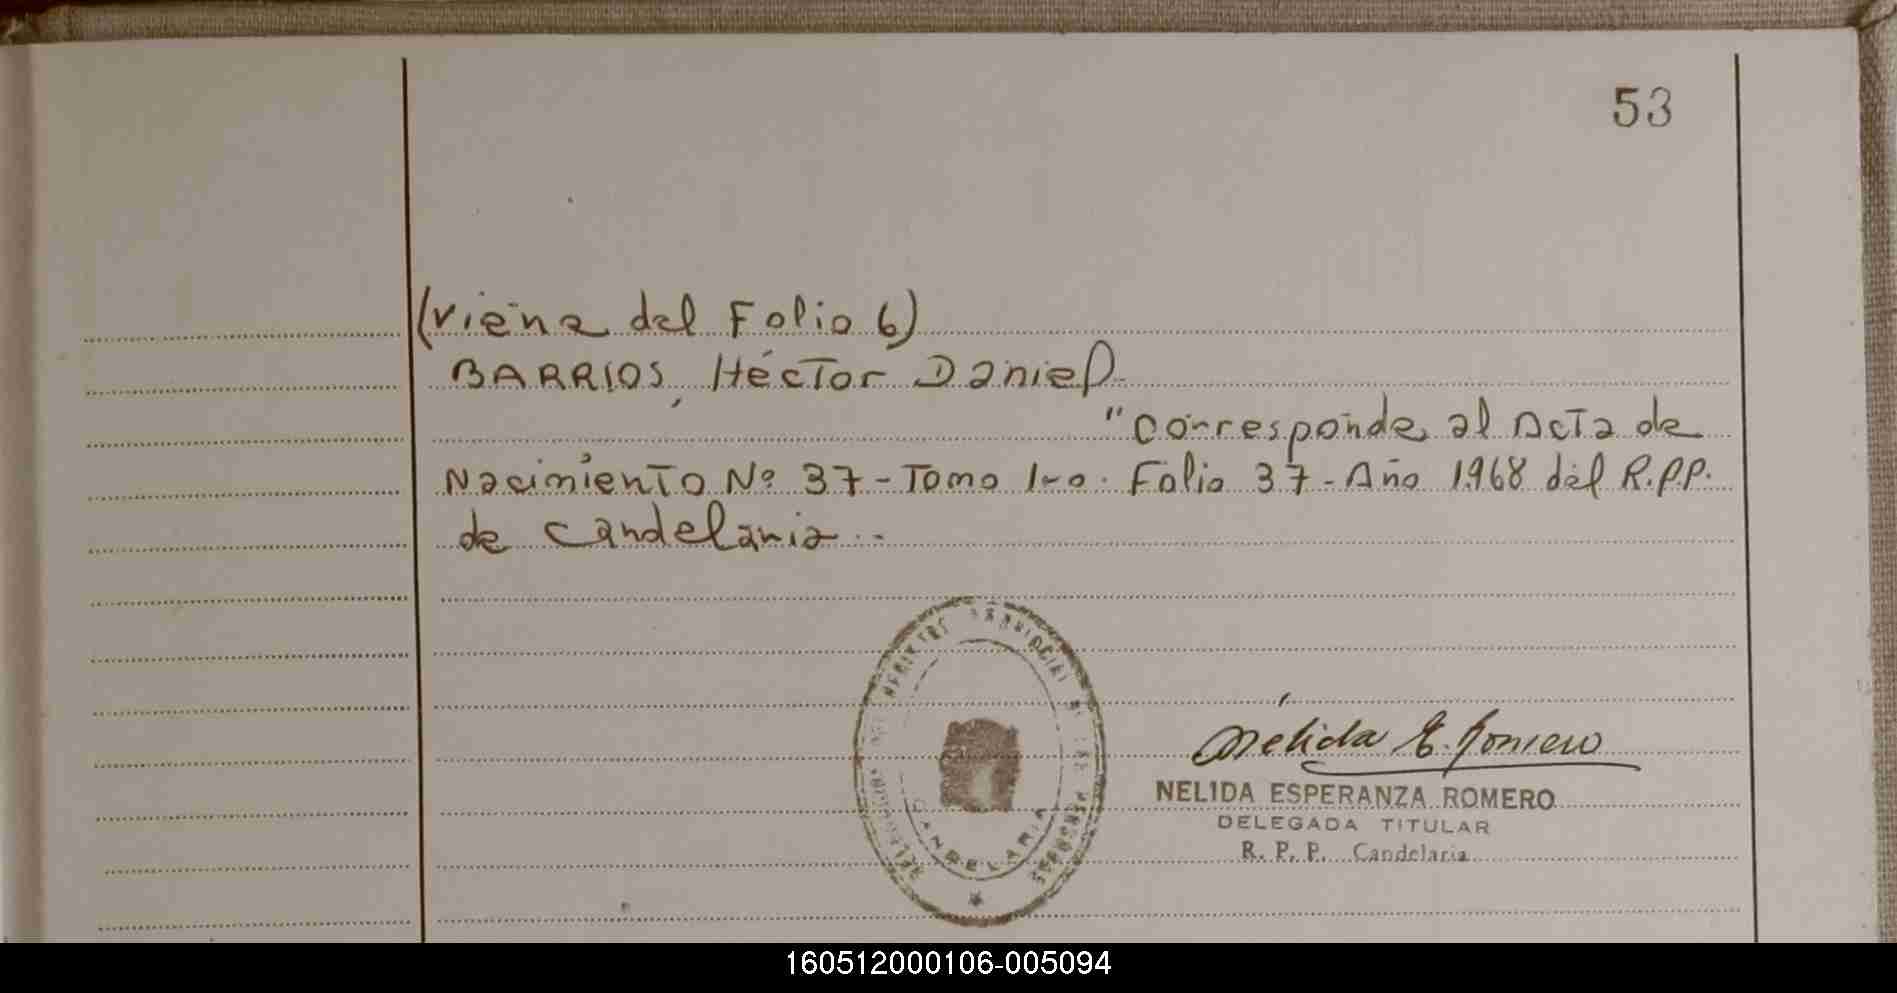 53
(viene del Folio 6)
BARRIOS, Héctor Daniel.
"corresponde al Acta de
Nacimiento Nº 37 - Tomo 1ro. Folio 37 - Año 1968 del R.P.P.
de Candelaria..
PROVINCIAL DE LAS PERSONAS
CANDELARIA
Nélida E. Romero
NELIDA ESPERANZA ROMERO
DELEGADA TITULAR
R. P. P. Candelaria
160512000106-005094